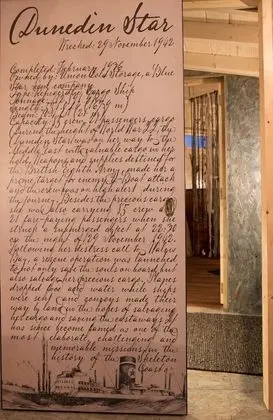 Dunedin Star
Wrecked: 29 November 1942
Completed: February 1936
Owned by: Union Cold Storage, a Blue
Star Line company
Type: Refrigerated Cargo Ship
Capacity: crew, 21 passengers, cargo
During the height of World War II, the
Dunedin Star was on her way to the
Middle East with valuable cargo in her
hold. Weapons and supplies destined for
the British Eighth Army made her a
prime target for enemy U-Boat attack
and the crew was on high alert during
the journey. Besides the precious cargo
she was also carrying 85 crew and
21 fare-paying passengers when she
struck a submerged object at 22:30
on the night of 29 November 1942.
Following her distress call to Walvis
Bay, a rescue operation was launched
to not only save the souls on board but
also salvage her precious cargo. Planes
dropped food and water while ships
were sent and convoys made their
way by land in the hopes of salvaging
her cargo and saving the castaways. It
has since become famed as one of the
most elaborate, challenging and
memorable missions in the
history of the Skeleton
Coast.